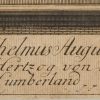 helmus Augu
Hertzog von
Cumberland..